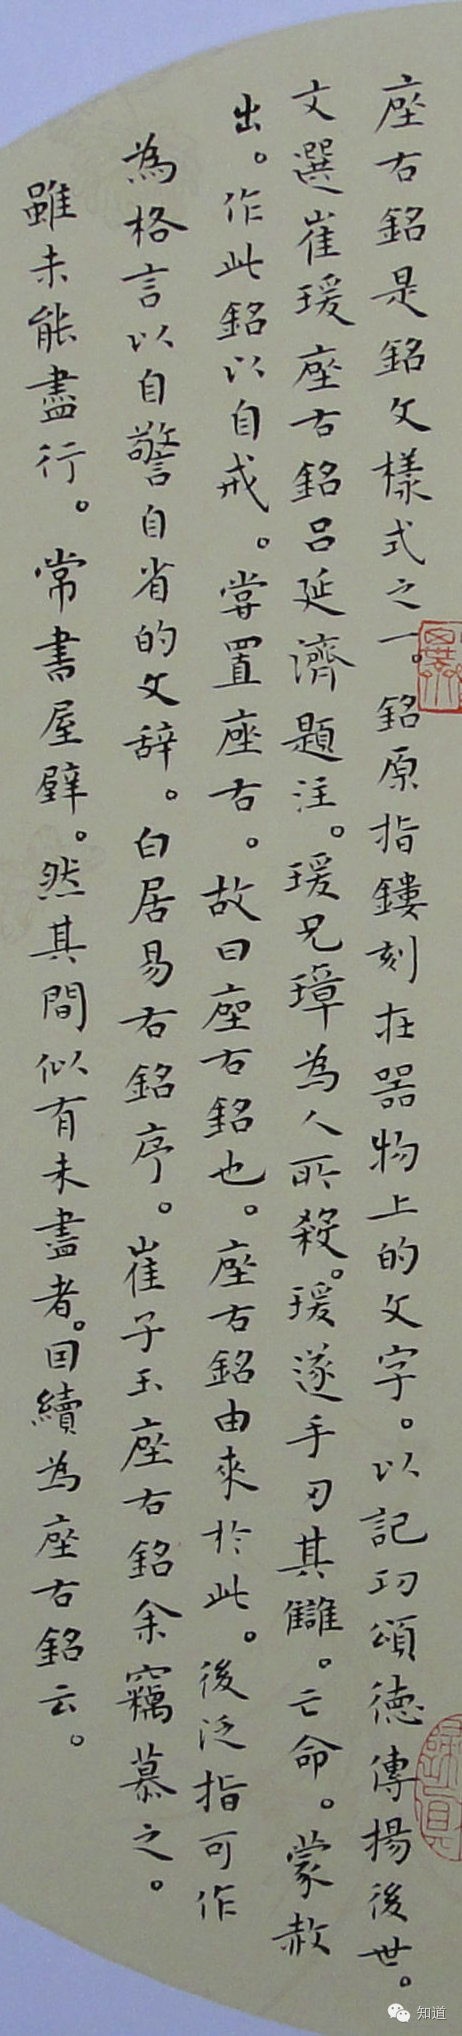 座右銘是銘文樣式之一。銘原指鏤刻在器物上的文字。以記功頌德傳揚後世。
文選崔瑗座右銘呂延濟題注。瑗兄璋為人所殺。瑗遂手刃其讎。亡命。蒙赦
出。作此銘以自戒。嘗置座右。故曰座右銘也。座右銘由來於此。後泛指可作
為格言以自警自省的文辞。白居易右銘序。崔子玉座右銘余竊慕之。
雖未能盡行。常書屋壁。然其間似有未盡者。因續為座右銘云。
知道